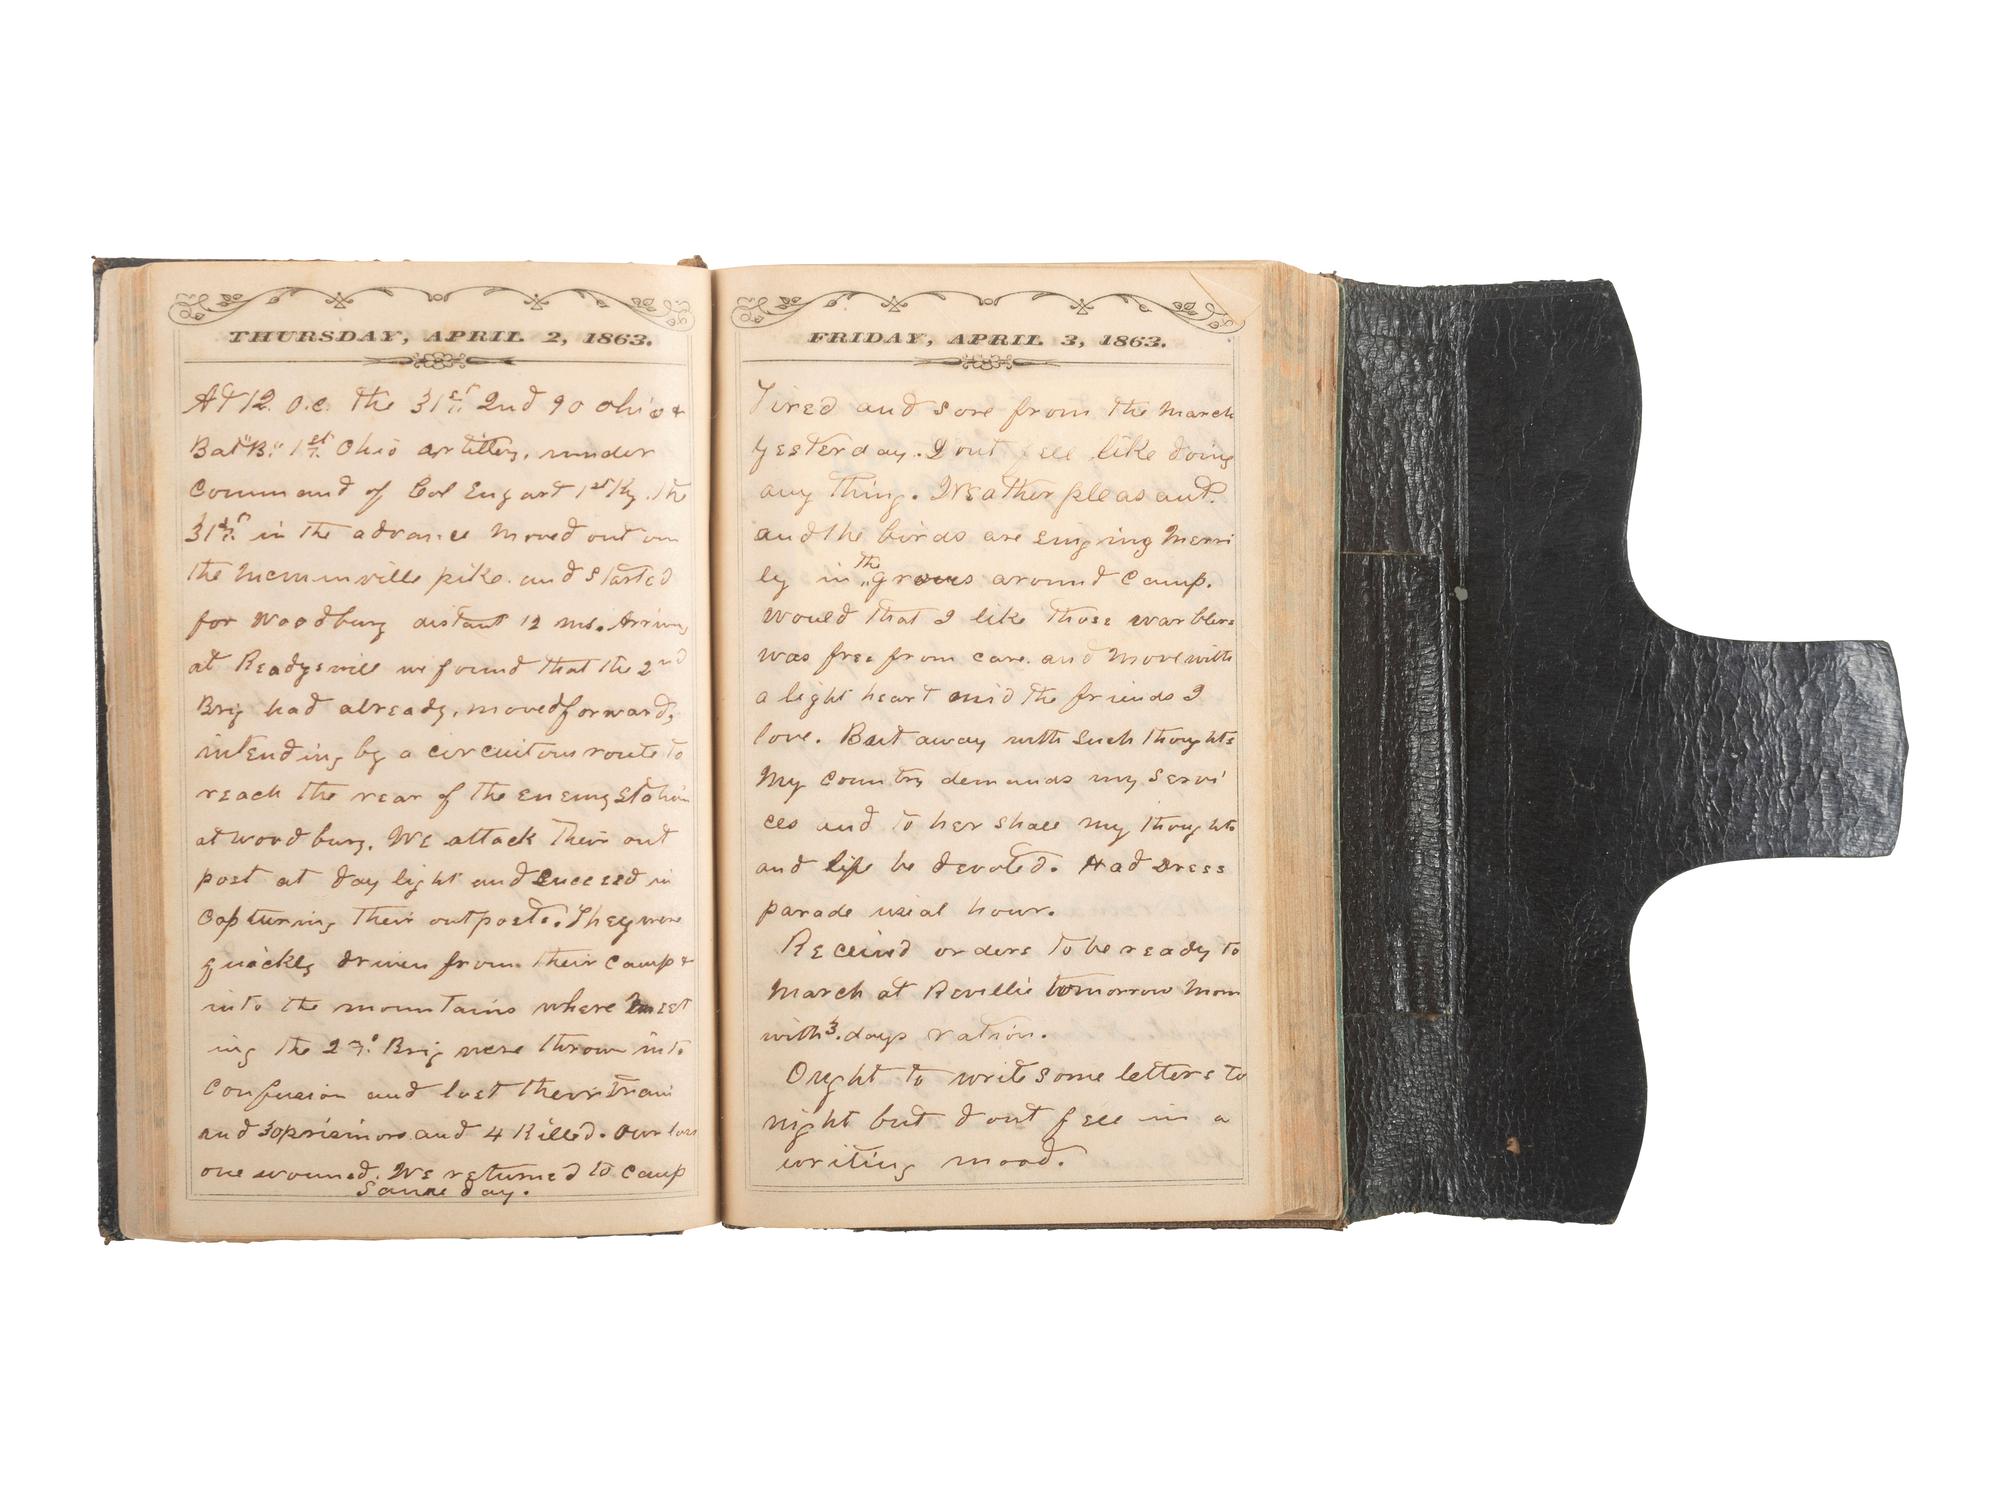 THURSDAY, APRIL 2, 1863.
At 12. O.C. The 31st. 2nd 90 Ohio &
Bat "B." 1st Ohio artillery, under
Command of Col Engart 1st Ky. The
31st. in the advance moved out on
the McMinnville pike. and started
for Woodbury distant 12 ms. Arriving
at Readysvill we found that the 2nd
Brig had already, moved forward,
intending by a circuitous route to
reach the rear of the enemy station
at Woodbury. We attack their out
post at day light and succeed in
Capturing their outposts. They were
quickly driven from their Camp &
into the mountains where meet
ing the 2nd. Brig were thrown into
Confusion and lost their train
and 30 prisinors and 4 Killed. Our loss
one wounded. We returned to Camp
Same day.
FRIDAY, APRIL 3, 1863.
Tired and sore from the March
yesterday. Dont feel like doing
any thing. Weather pleasant.
and the birds are singing Merri
ly in the groves around Camp.
Would that I like those warblers
was free from care. and Move with
a light heart mid the friends I
love. But away with Such thoughts
My Country demands my Servi
ces and to her shall my thoughts
and life be devoted. Had Dress
parade usial hour.
Received orders to be ready to
March at Revillie tomorrow Morn
with 3. days ration.
Ought to write some letters to
night but dont feel in a
writing mood.